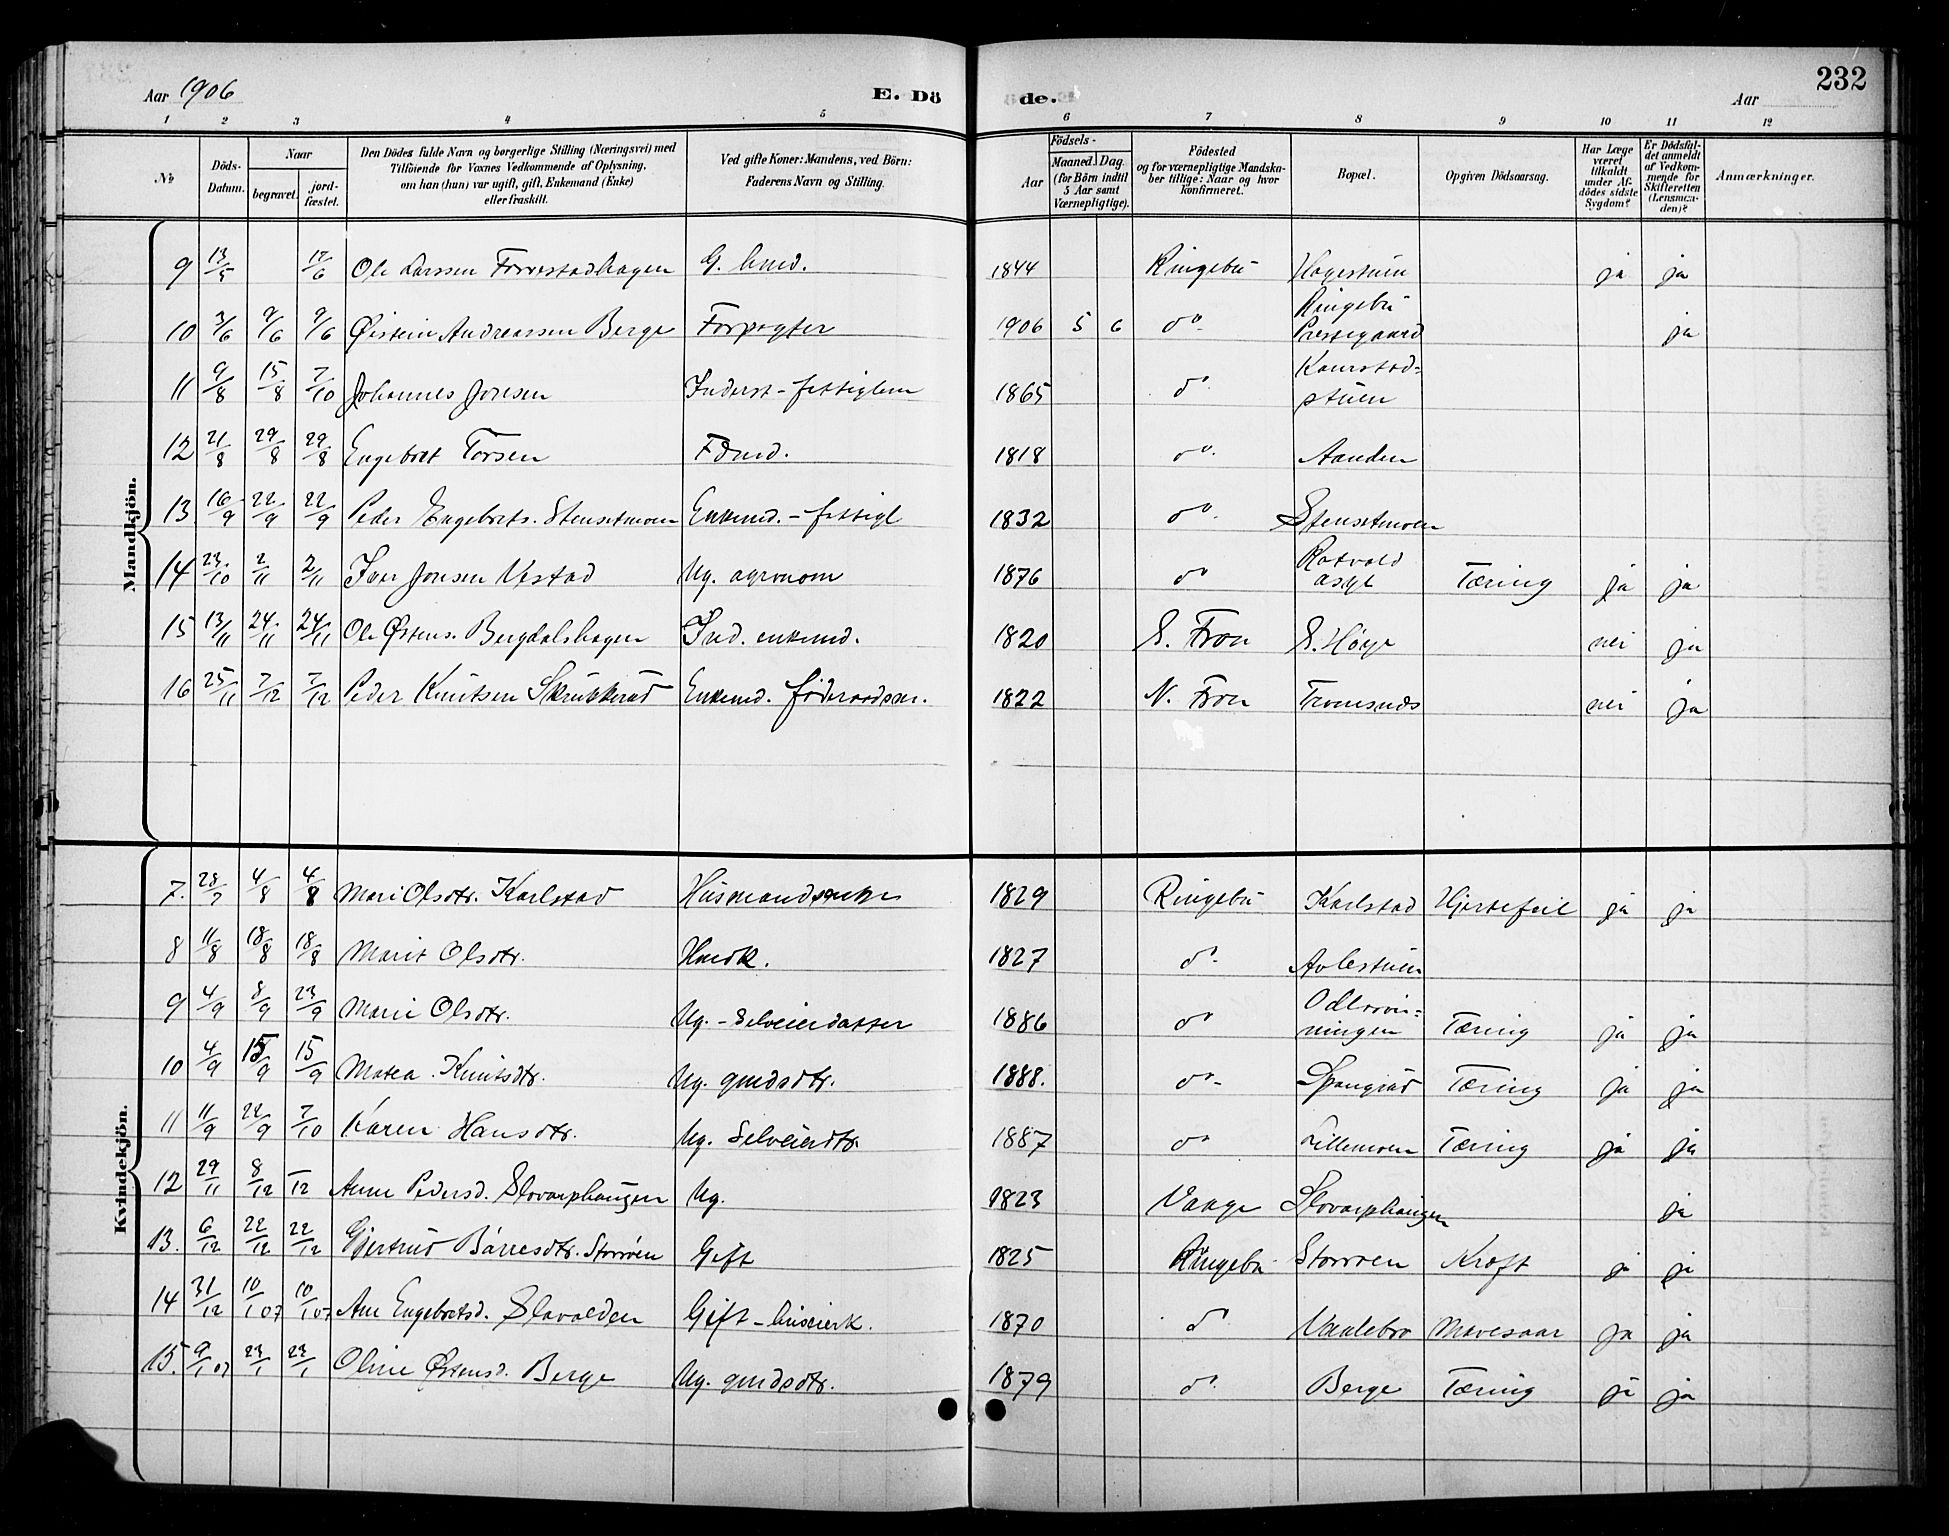 Aar 1906 E. Dö de. Aar 232
1 2 3 4 5 6 7 8 9 10 11 12
№ Döds-Datum. Naar begravet. jord-fæstet. Den Dödes fulde Navn og borgerlige Stilling (Næringsvei) med Tilföiende for Voxnes Vedkommende af Oplysning, om han (hun) var ugift, gift, Enkemand (Enke) eller fraskilt. Ved gifte Koner: Mandens, ved Börn: Faderens Navn og Stilling. Födsels- Aar Maaned. Dag. (for Börn indtil 5 Aar samt Værnepligtige). Födested og for værnepligtige Mandskaber tillige: Naar og hvor konfirmeret. Bopæl. Opgiven Dödsaarsag. Har Læge været tilkaldt under Afdödes sidste Sygdom? Er Dödsfaldet anmeldt af Vedkommende for Skifteretten (Lensmanden)? Anmærkninger.
Mandkjön.
9 13/5 17/6 Ole Larssen Forrestadhagen G. kmd. 1844 Ringebu Hagestuen ja ja
10 3/6 9/6 9/6 Øistein Andreassen Berge Forpagter 1906 5 6 do Ringebu Prestegaard ja
11 9/8 15/8 7/10 Johannes Jonsen Inderst - fattiglem 1865 do stuen
12 21/8 29/8 29/8 Engebret Torsen Fdmd. 1818 do. Aanden
13. 16/9 22/9 22/9 Peder Engebrets. Stensetmoen Enkemd. - fattigl 1832 do. Stensetmoen
14 23/10 2/11 2/11 Iver Jonsen Vestad Ug. agronom 1876 do Ratvold asyl Tæring ja ja
15 13/11 24/11 24/11 Ole Østens. Bergdalshagen Ind. enkemd. 1820 S. Fron S. Høye nei ja
16 25/11 7/12 7/12 Peder Knutsen Skrukkerud Enkemd. föderaadsm. 1822 N. Fron Tromsnæs nei ja
Kvindekjön.
7. 28/7 4/8 4/8 Mari Olsdtr. Karlstad Husmandsenke 1829 Ringebu Karlstad Hjertefeil ja ja
8 11/8 18/8 18/8 Marit Olsdtr. Hmdk. 1827 do. Avlestuen
9 4/9 8/9 23/9 Marie Olsdtr. Ug. - Selveierdatter 1886 do Tæring ja ja
10 4/9 15/9 15/9 Matea Knutsdtr. Ug. gmdsdtr. 1888. do- Spangrud Tæring ja ja
11 11/9 22/9 7/10 Karen Hansdtr. Ug. Selveierdtr. 1887 do Lillemoen Tæring ja ja
12 29/11 8/12 –/12 Anne Pedersd. Slovarphaugen Ug. 1823 Vaage Slovarphaugen ja
13. 6/12 22/12 22/12 Gjertrud Bårresdtr. Storrøen Gift 1825 Ringebu Storrøen Kræft ja ja
14 31/12 10/1 07 10/1 07 Ane Engebretsd. Slavolden Gift - huseierk. 1870 do Vaalebro Mavesaar ja ja
15. 9/1 07 23/1 23/1 Oline Østensd. Berge Ug. gmdsdtr. 1879 do. Berge Tæring ja ja